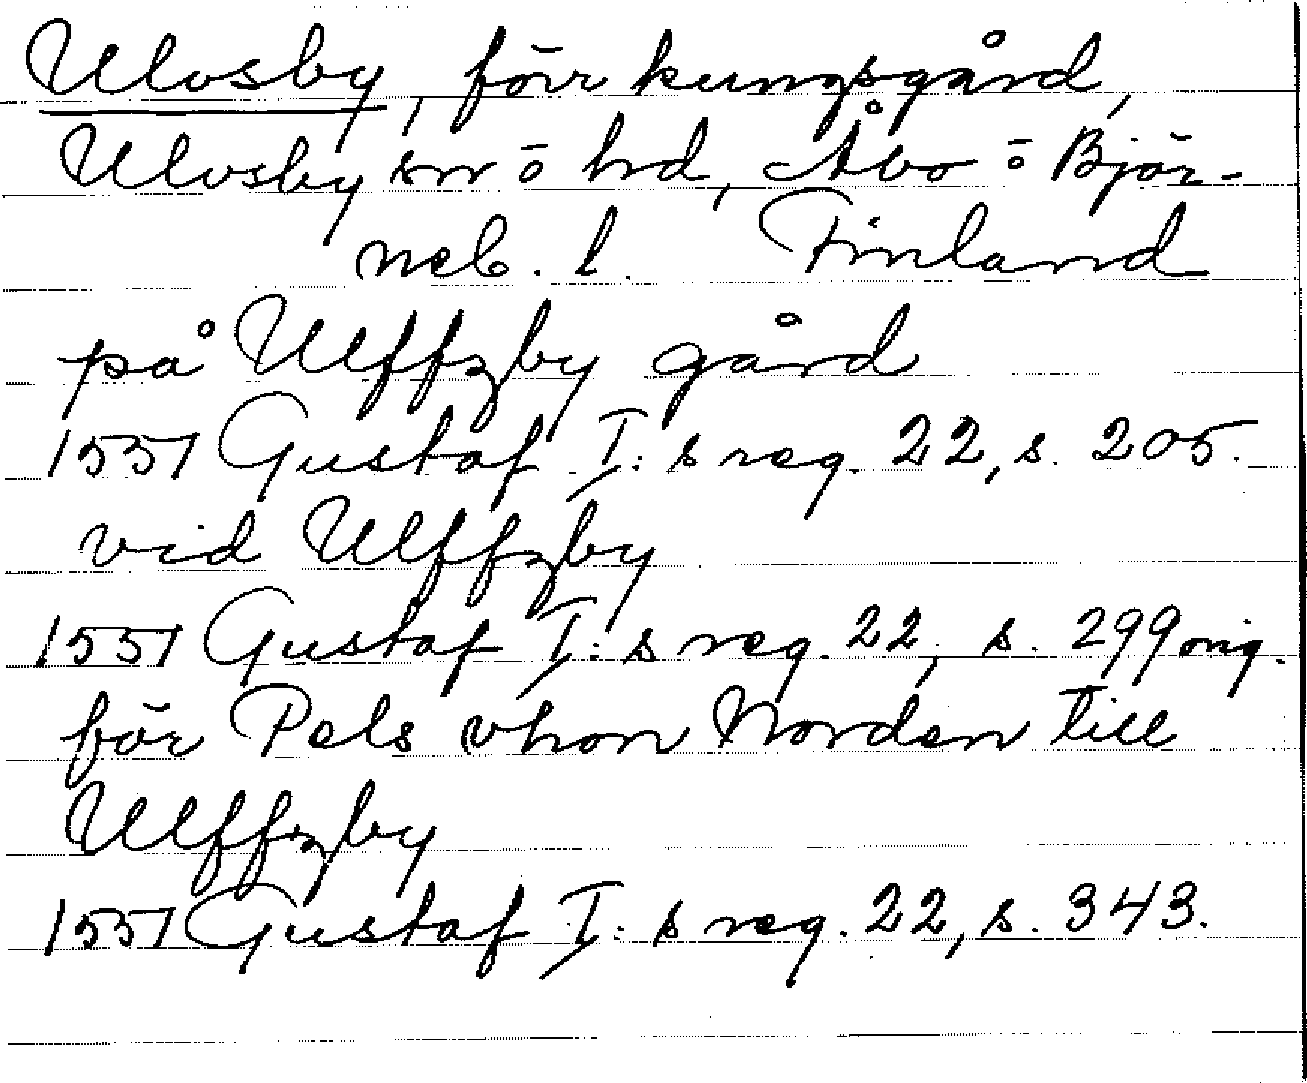 Ulvsby, förr kungsgård,
Ulvsby sn o hd, Åbo o Björ-
neb. l. Finland
på Ulffzby gård
1551 Gustaf I:s reg. 22, s. 205.
vid Ulffzby
1551 Gustaf I:s reg. 22, s. 299 orig.
för Pels vhon Norden till
Ulffzby
1551 Gustaf I:s reg. 22, s. 343.